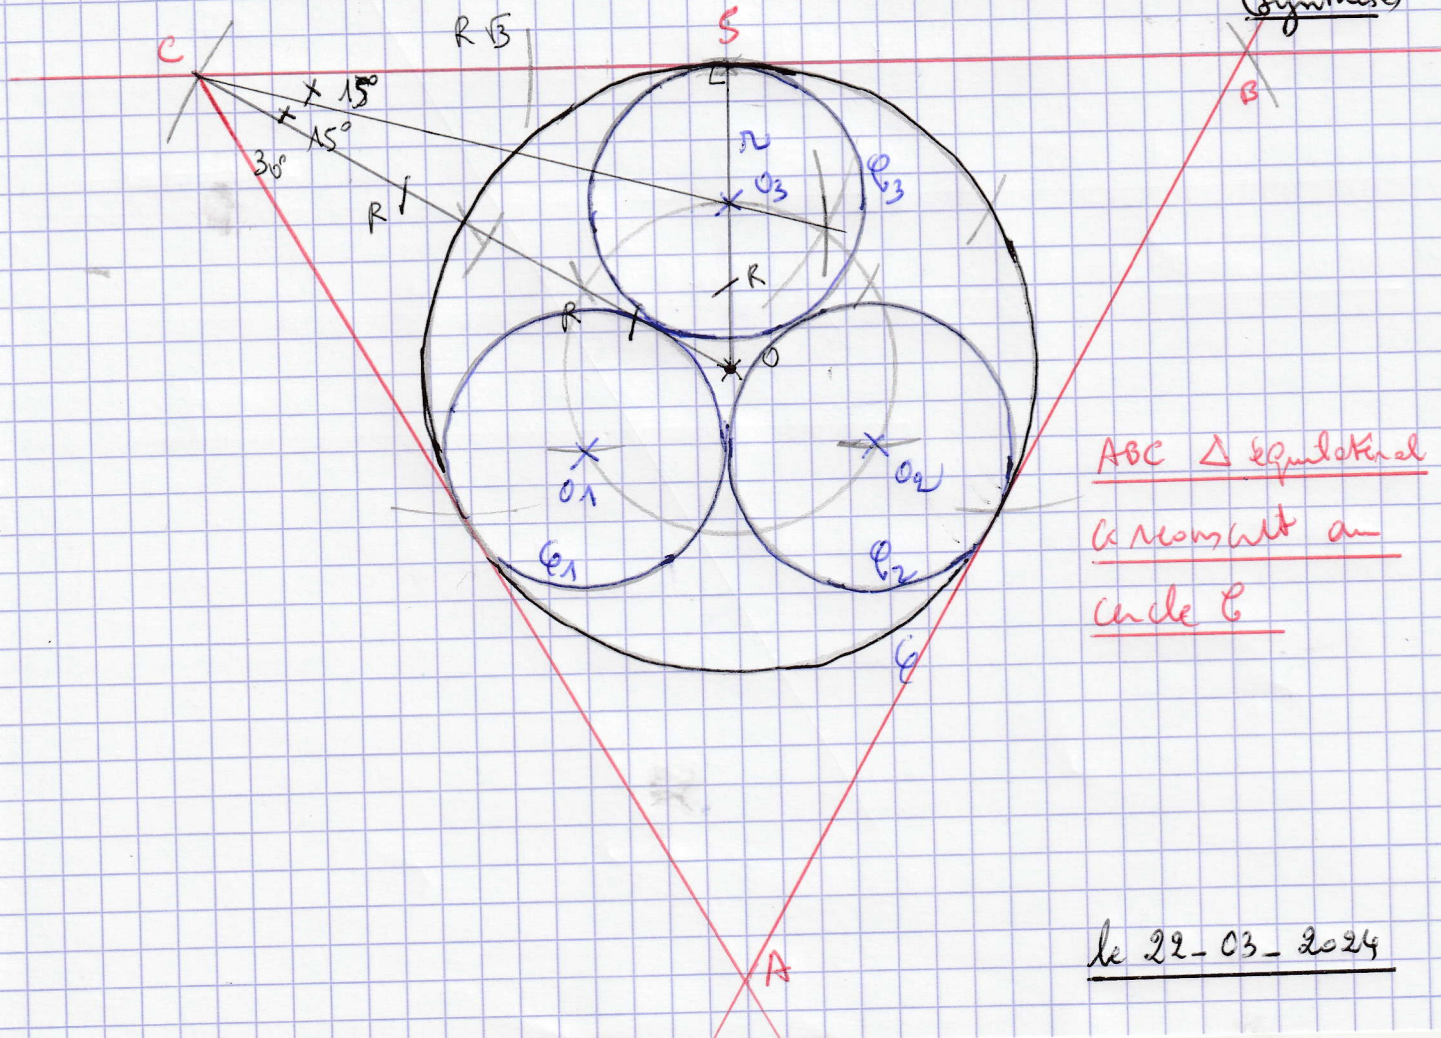 (Synthèse)
C
R√3
S
B
15°
15°
30°
R
R
R
r
O3
C3
O
O1
O2
C1
C2
C
ABC Δ équilatéral
circonscrit au
cercle C
le 22-03-2024
A